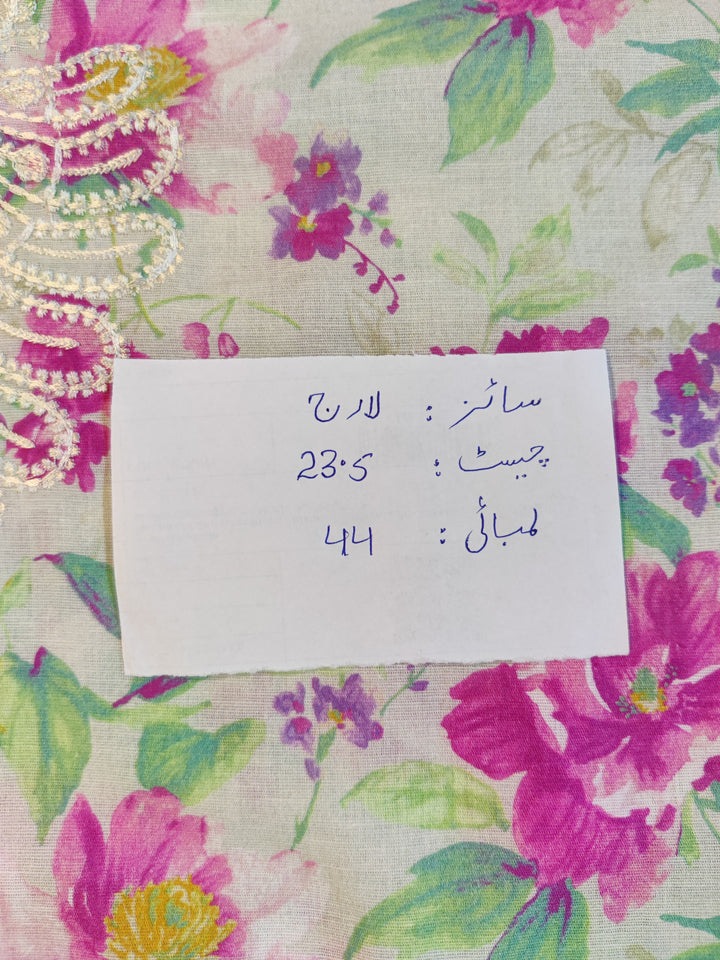 سائز : لارج
چیسٹ : 23.5
لمبائی : 44